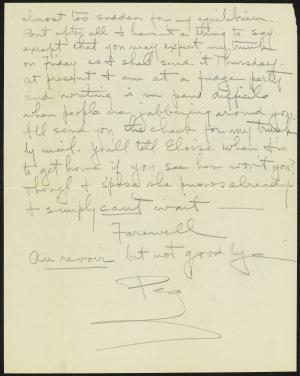 almost too sudden for my equilibrium.
But after all I haven't a thing to say
except that you may expect my trunk
on Friday as I shall send it Thursday.
At present I am at a fudge party
and writing is difficult
when people are jabbering around you.
I'll send you the check for my trunk
by mail. You'll tell Eloise when I'm
to get home if you see her won't you?
Though I s'pose she knows already
I simply can't wait —
Farewell
Au revoir but not good bye
Peg